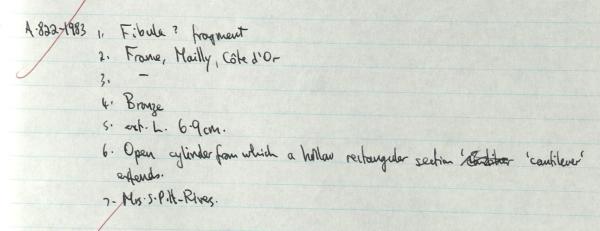 A.822-1983 1. Fibula? fragment
2. France, Mailly, Côte d'Or
3. –
4. Bronze
5. ext. L. 6.9cm.
6. Open cylinder from which a hollow rectangular section 'cantilever'
extends.
7. Mrs. S. P.H-Rives.